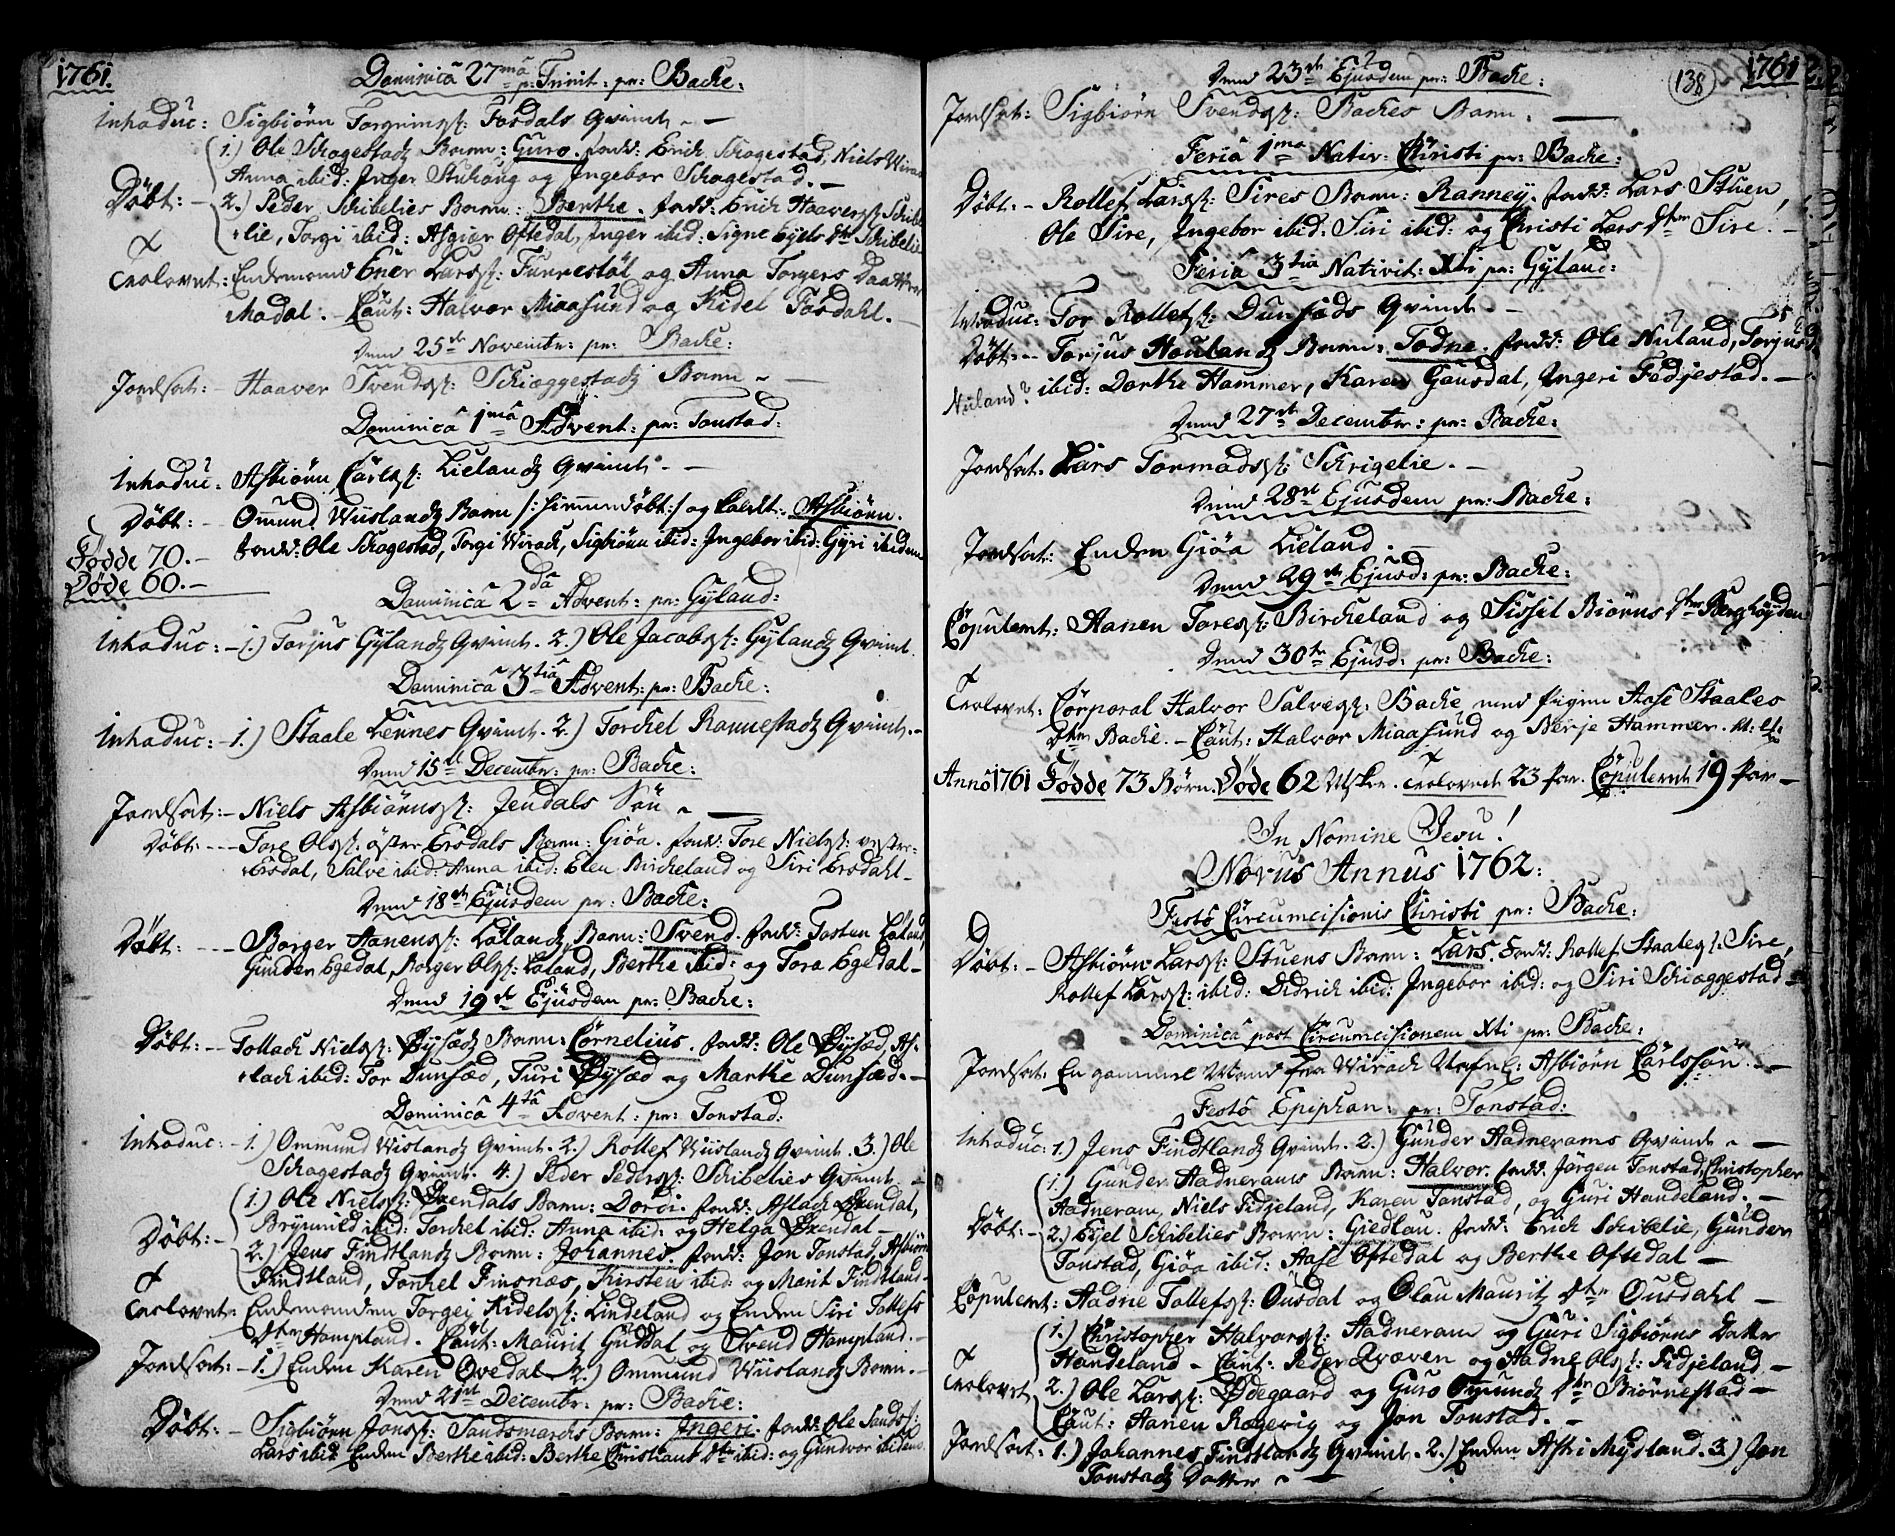 1761.
Dominica 27ma p: Trinit: pr: Backe:
Introduc: Sigbiørn Torgrims: Fosdals Qvinde
1.) Ole Schagestads Barn: Guro. fadd: Erich Schagestad, Niels Wirach
Anna ibid: Inger Stuhaug og Ingebor Schagestad.
Døbt: 2.) Peder Schibelies Barn: Berthe. fadd: Erich Haavers: Schibe
lie, Torgi ibid: Asgiær Oftedal, Inger ibid: Signe Eyels Dtr Schibelie
Trolovet: Enkemand Ener Lars: Tunnestøl og Anna Torgers Daatter
Madal. Caut: Halvor Miaasund og Kidel Fosdahl.
Dend 25de Novembr: pr: Backe:
Jordfæt: Haaver Svends: Schiæggestads Barn
Dominica 1ma Advent: pr: Tonstad:
Introduc: Asbiørn Carls: Lielands Qvinde.
Døbt: Omund Wiislands Barn /: hiemmedøbt :/ og kaldt: Asbiørn.
Fødde 70. fadd: Ole Schagestad, Torgi Wirach, Sigbiørn ibid: Ingebor ibid: Gyri ibidem
Døde 60.
Dominica 2da Advent: pr: Gyland:
Introduc: 1.) Torjus Gylands Qvinde. 2.) Ole Jacobs: Gylands Qvinde.
Dominica 3tia Advent: pr: Backe:
Introduc: 1.) Staale Lennes Qvinde. 2.) Torchel Rannestads Qvinde.
Dend 15de Decembr: pr: Backe:
Jordfæt: Niels Asbiørns: Jendals Søn
Døbt: Tore Ols: øster Ersdals Barn: Giøa. fadd: Tore Niels: vester
Ersdal, Salve ibid: Anna ibid: Elen Bircheland og Siri Ersdahl
Dend 18de Ejusdem pr: Backe:
Døbt: Børger Aanens: Lølands Barn: Svend. fadd: Tosten Løland,
Gunder Egedal, Børger Ols: Løland, Berthe ibid: og Tora Egedal
Dend 19de Ejusdem pr: Backe:
Døbt: Tollach Niels: Øysæds Barn: Cornelius. fadd: Ole Øysæd, As-
lach ibid: Tor Dunsæd, Turi Øysæd og Marthe Dunsæd.
Dominica 4ta Advent: pr: Tonstad:
Introduc: 1.) Ommund Wislands Qvinde. 2.) Rollef Wislands Qvinde. 3.) Ole
Schagestads Qvinde. 4.) Peder Peders: Schibelies Qvinde.
1.) Ole Niels: Øxendals Barn: Dordi. fadd: Aslach Øxendal,
Brynnild ibid: Torchel ibid: Anna ibid: og Helga Øxendal
Døbt: 2.) Jens Findtlands Barn: Johannes. fadd: Jon Tonstad, Asbiørn
Findtland, Torchel Finsnæs, Kirsten ibid: og Marit Findtland
Trolovet: Enkemanden Torgei Kidels: Lindeland og Enken Siri Tollefs
Dtr Hompland. Caut: Maurit Guddal og Svend Hompland.
Jordfæt: 1.) Enken Karen Qvedal 2.) Ommund Wiislands Barn.
Dend 21de Decembr: pr: Backe:
Døbt: Sigbiørn Jons: Sandsmarchs Barn: Ingeri. fadd: Ole Sands:
Lars ibid: Enken Berthe ibid: Berthe Christians Dtr ibid: og Gundvor ibidem
138
1761
Dend 23de Ejusdem pr: Backe:
Jordfæt: Sigbiørn Svends: Backes Barn.
Feria 1ma Nativ: Christi pr: Backe:
Døbt: Rollef Lars: Sires Barn: Ranney. fadd: Lars Stuen,
Ole Sire, Ingebor ibid: Siri ibid: og Christi Lars Dtr Sire.
Feria 3tia Nativit: Xti pr: Gyland:
Introduc: Tor Rollefs: Dunsæds Qvinde.
Døbt: Torjus Houlands Barn: Todne. fadd: Ole Nuland, Torjus
Nuland? ibid: Dorthe Hammer, Karen Gausdal, Ingeri Fedjestad.
Dend 27de Decembr: pr: Backe:
Jordfæt: Lars Tormods: Schrigelie.
Dend 28de Ejusdem pr: Backe:
Jordfæt: Enken Giøa Lieland.
Dend 29de Ejusd: pr: Backe:
Copuleret: Aanen Tores: Bircheland og Sissil Biørns Dtr Berghøyden
Dend 30te Ejusd: pr: Backe:
Trolovet: Corporal Halvor Salves: Backe med Pigen Aase Staales
Dtr Backe. Caut: Halvor Miaasund og Berje Hammer.
Anno 1761 Fødde 73 Børn. Døde 62 Msker. Trolovede 23 Par. Copulerede 19 Par
In Nomine Jesu!
Novus Annus 1762:
Festo Circumcisionis Christi pr: Backe:
Døbt: Asbiørn Lars: Stuens Barn: Lars. fadd: Rollef Staales: Sire,
Rollef Lars: ibid: Didrich ibid: Ingebor ibid: og Siri Schiæggestad
Dominica post Circumcisionem Xti pr: Backe:
Jordfæt: En gammel Mand fra Wirach Nafnl: Asbiørn Carlssøn
Festo Epiphan: pr: Tonstad:
Introduc: 1.) Jens Findtlands Qvinde. 2.) Gunder Aadnerams Qvinde
1.) Gunder Aadnerams Barn: Halvor. fadd: Jørgen Tonstad, Christopher
Aadneram, Niels Fidjeland, Karen Tonstad, og Guri Handeland.
Døbt: 2.) Eyel Schibelies Barn: Giedlau. fadd: Erich Schibelie, Gunder
Tonstad, Giøa ibid: Aase Oftedal og Berthe Oftedal
Copuleret: Aadne Tollefs: Ousdal og Olau Maurits Dtr Ousdahl
1.) Christopher Halvors: Aadneram og Guri Sigbiørns Datter
Handeland Caut: Peder Qvæven og Aadne Ols: Fidjeland
Trolovet 2.) Ole Lars: Ødegaard og Guro Omunds Dtr Biørnestad
Caut: Aanen Røgevig og Jon Tonstad.
Jordfæt: 1.) Johannes Findtlands Qvinde. 2.) Enken Astri Mydland. 3.) Jon
Tonstads Datter